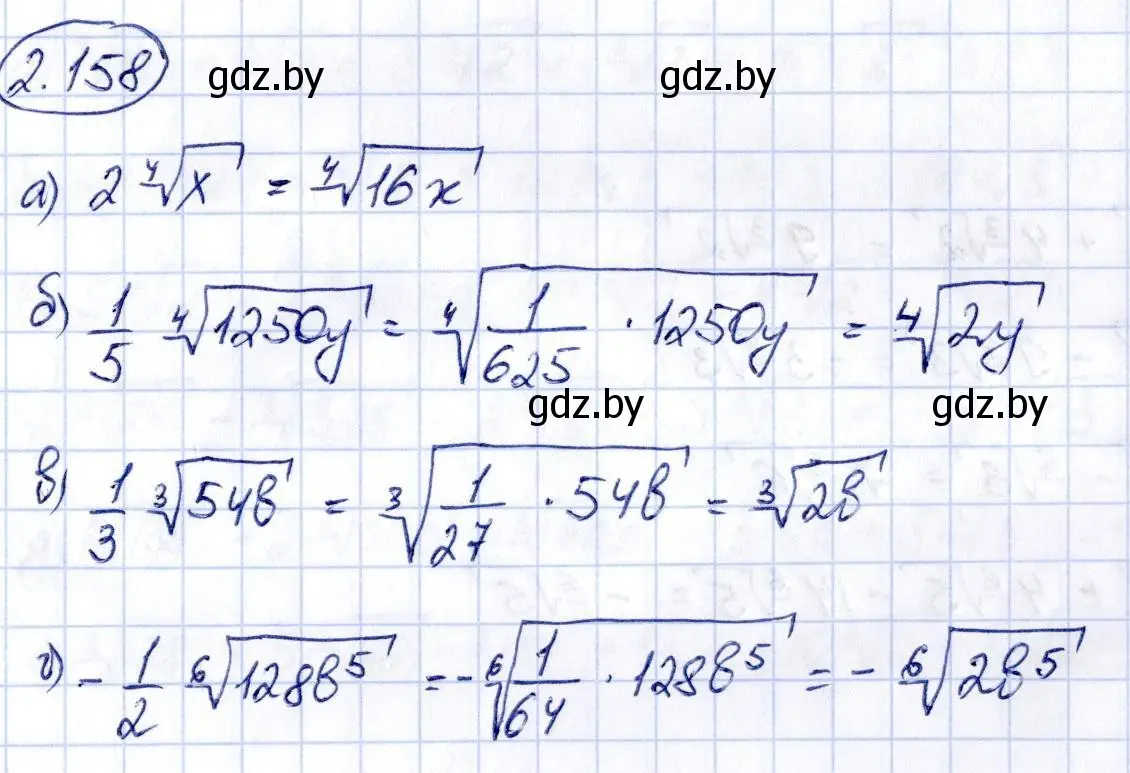 2.158 gdz.by gdz.by
а) 2 ∜x = ∜16x
б) 1/5 ∜1250y = ∜(1/625 · 1250y) = ∜2y
gdz.by gdz.by
в) 1/3 ∛54b = ∛(1/27 · 54b) = ∛2b
г) - 1/2 ⁶√128b⁵ = - ⁶√(1/64 · 128b⁵) = - ⁶√2b⁵